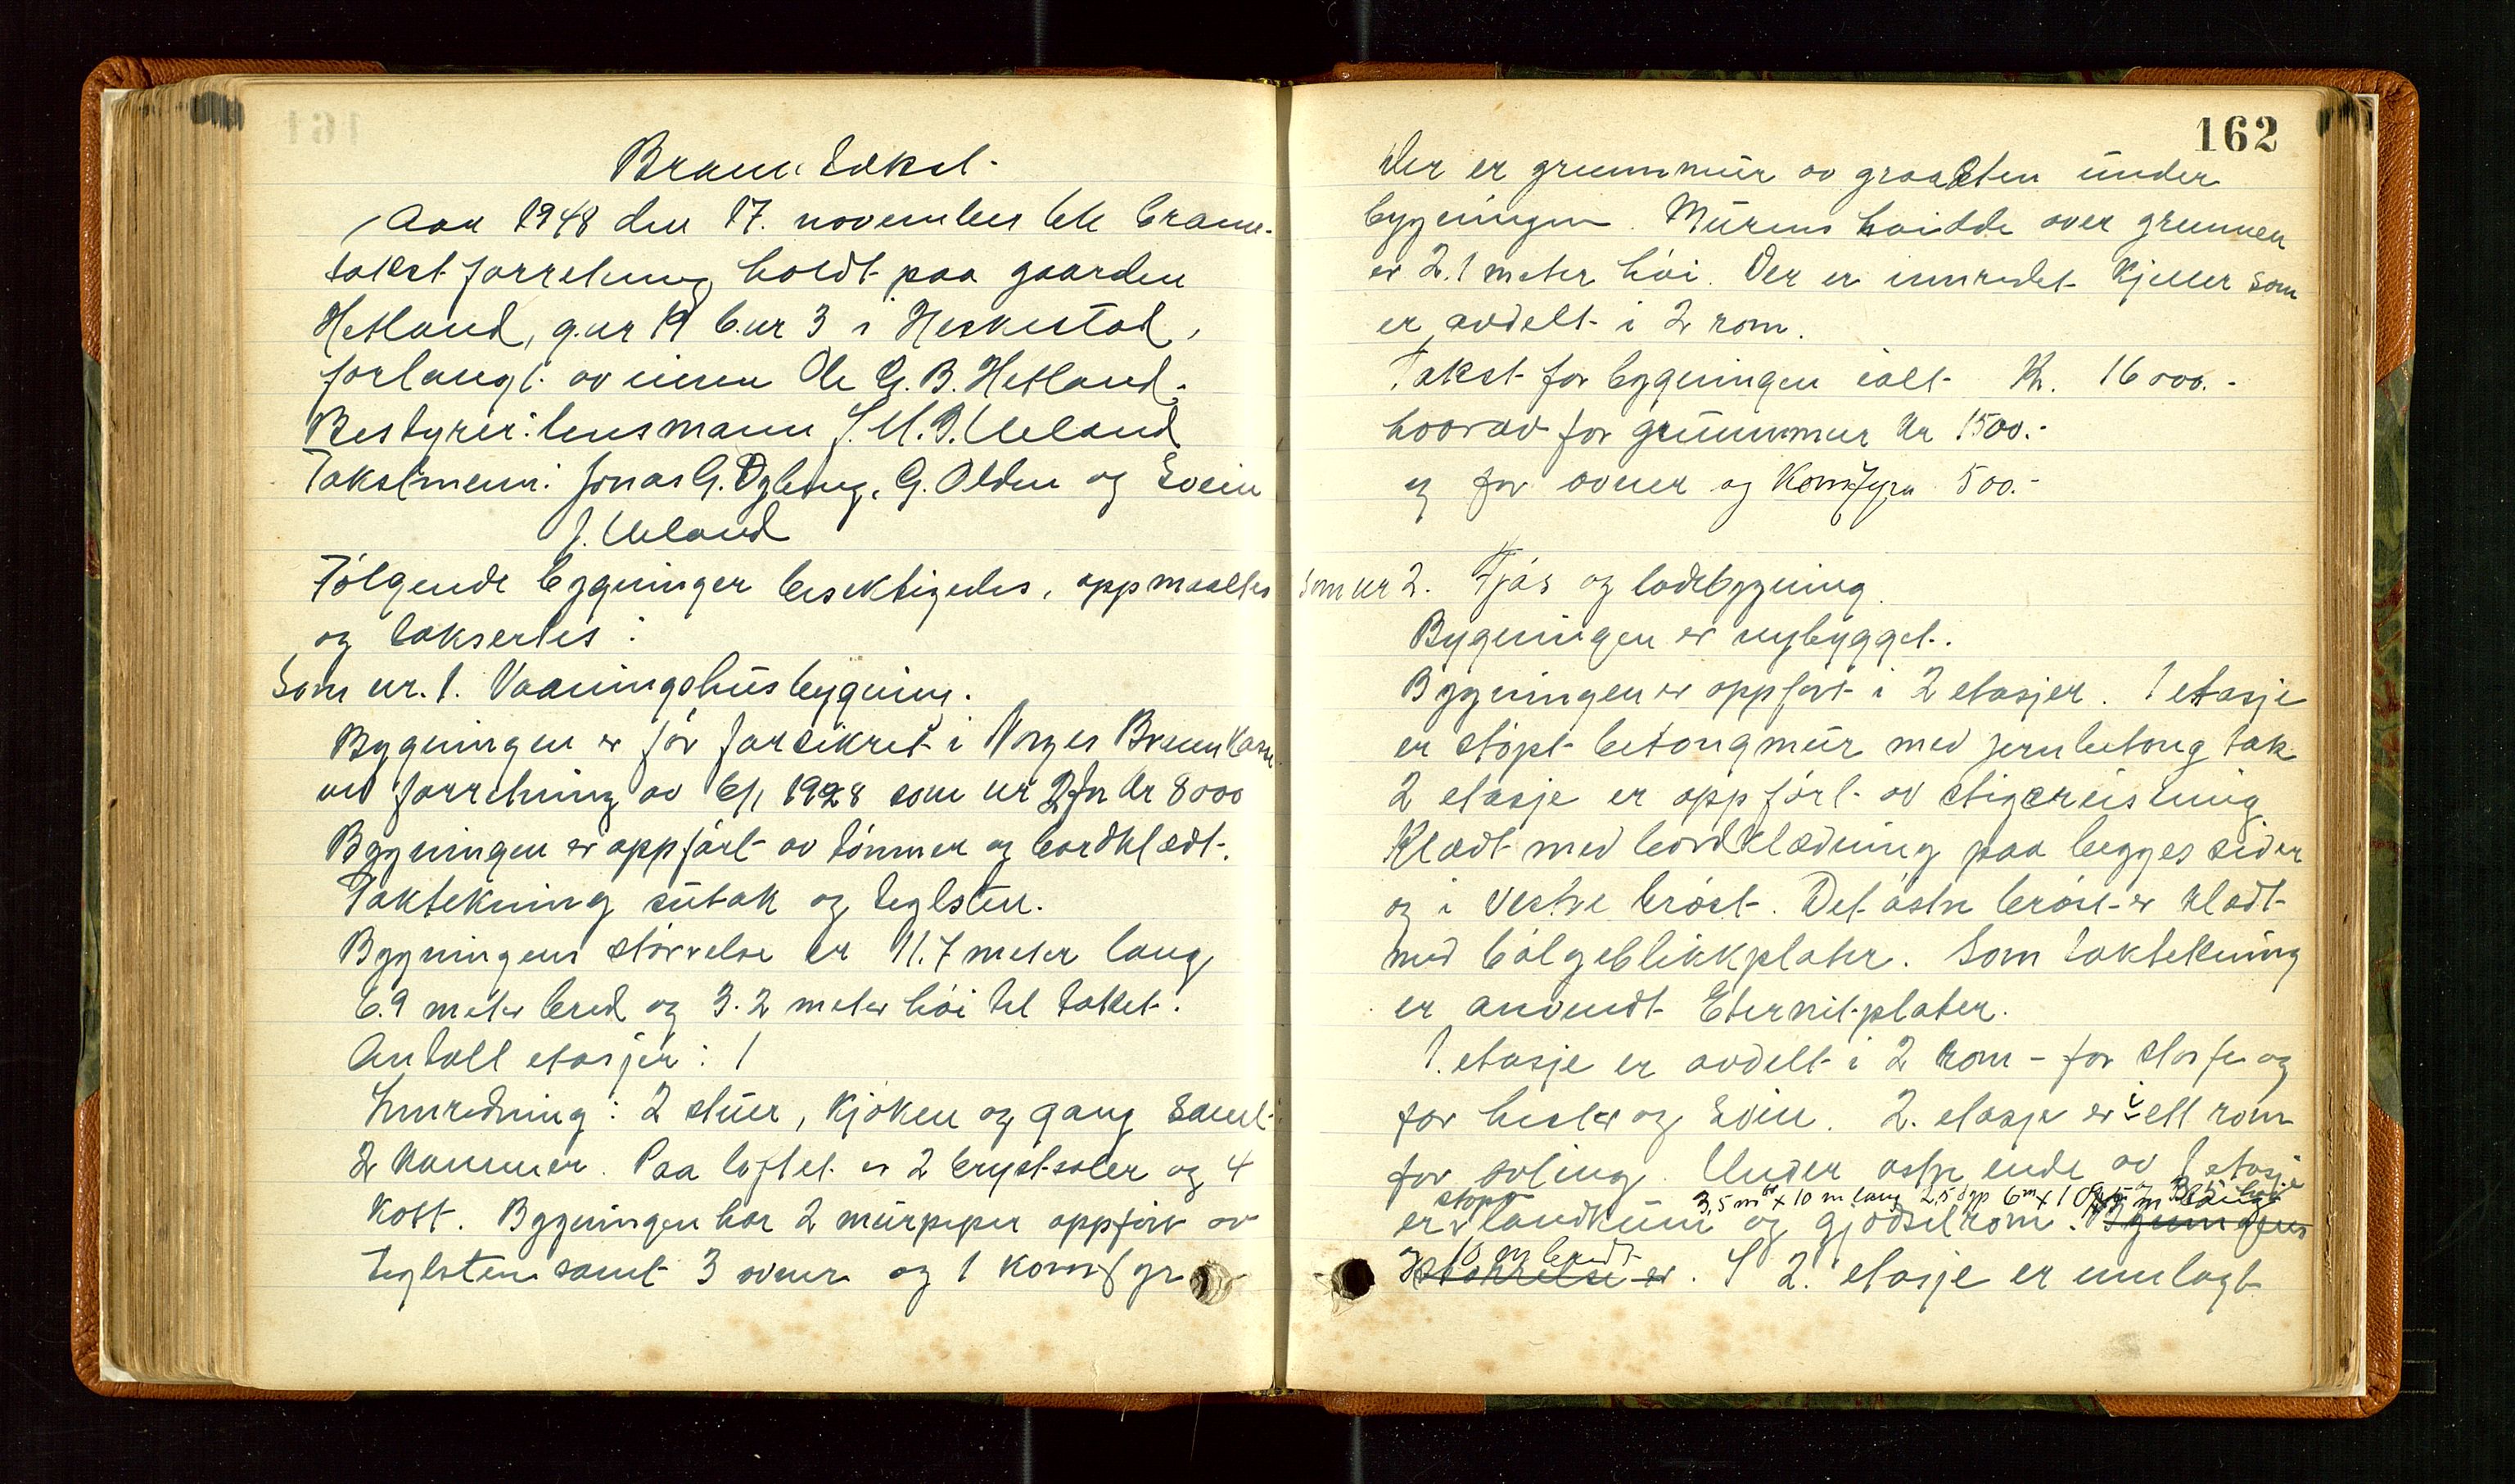 Branntakst.
Aar 1948 den 17. november ble brann-
takst forretning holdt paa gaarden
Hetland, g.nr 19 b.nr 3 i Heskestad,
forlangt av eieren Ole G. B. Hetland.
Bestyrer: lensmann J. M. B. Ueland
Takstmenn: Jonas G. Øgling, G. Olden og Svein
J. Ueland
Følgende bygninger besiktigedes, oppmaaltes
og taksertes:
Som nr. 1. Vaaningshusbygning.
Bygningen er før forsikret i Norges Brannkasse
ved forretning av 6/1 1928 som nr 2 for kr 8000
Bygningen er oppført av tømmer og bordklædt.
Taktekning sutak og teglsten.
Bygningens størrelse er 11.7 meter lang,
6.9 meter bred og 3.2 meter høi til taket.
Antall etasjer: 1
Innredning: 2 stuer, kjøken og gang samt
2 kammer. Paa loftet er 2 brystsaler og 4
kott. Bygningen har 2 murpiper oppført av
teglsten samt 3 ovner og 1 komfyr
162
Der er grunnmur av graasten under
bygningen. Murens høidde over grunnen
er 2.1 meter høi. Der er innredet kjeller som
er avdelt i 2 rom.
Takst for bygningen ialt Kr. 16000.-
hvorav for grunnmur kr 1500.-
og for ovner og komfyr 500.-
Som nr 2. Fjøs og ladebygning.
Bygningen er nybygget.
Bygningen er oppført i 2 etasjer. 1 etasje
er støpt betongmur med jernbetong tak
2 etasje er oppført av stigereisning
Klædt med bordklædning paa begges sider
og i vestre brøst. Det østre brøst er klædt
med bølgeblikkplater. Som taktekning
er anvendt Eternitplater.
1. etasje er avdelt i 2 rom - for storfe og
for hester og svin. 2. etasje er i ett rom
for avling. Under østre ende av 1 etasje
støpt 3,5 m br x 10 m lang 2,5 dyp 6 m x 10
er landkum og gjødselrom. Bygningens
og 10 m bredt
størrelse er. I 2. etasje er innlagt